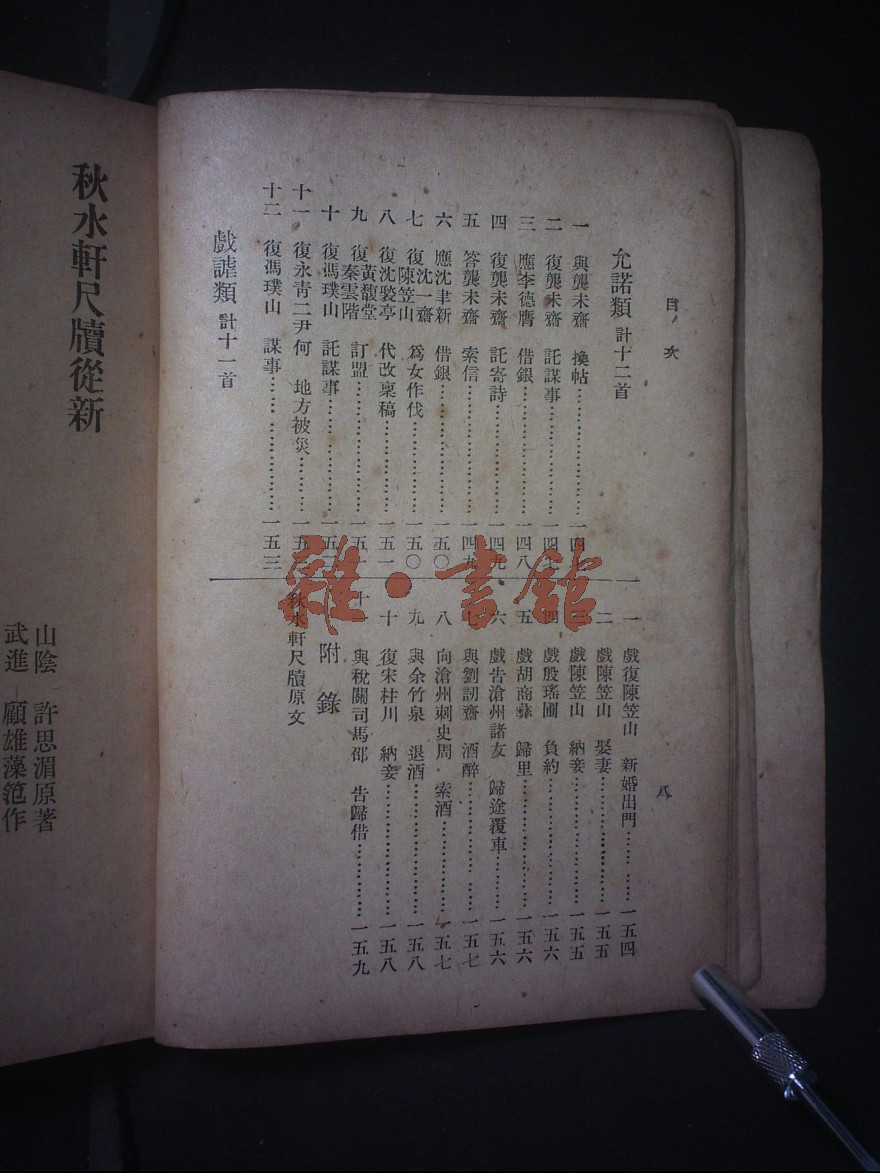 目次
八
允諾類 計十二首
一 與龔未齋 換帖……一四
二 復龔未齋 託謀事……一四
三 應李德膺 借銀……一四八
四 復龔未齋 託寄詩……一四九
五 答龔未齋 索信……一四九
六 應沈聿新 借銀……一五〇
七 復沈一齋 陳笠山 爲女作伐……一五〇
八 復沈褧亭 代改稟稿……一五一
九 復黃馥堂 秦雲階 訂盟……一五
十 復馮璞山 託謀事……一五
十一 復永青二尹何 地方被災……一五
十二 復馮璞山 謀事……一五三
戲謔類 計十一首
一 戲復陳笠山 新婚出門……一五四
二 戲陳笠山 娶妻……一五五
戲陳笠山 納妾……一五五
四 戲殷瑤圃 負約……一五六
五 戲胡商彝 歸里……一五六
六 戲告滄州諸友 歸途覆車……一五六
七 與劉訒齋 酒醉……一五七
八 向滄州刺史周 索酒……一五七
九 與余竹泉 退酒……一五八
十 復宋桂川 納妾……一五八
十一 與稅關司馬邵 告歸借……一五九
附錄
秋水軒尺牘原文
雜·書館
秋水軒尺牘從新
山陰 許思湄原著
武進 顧雄藻範作